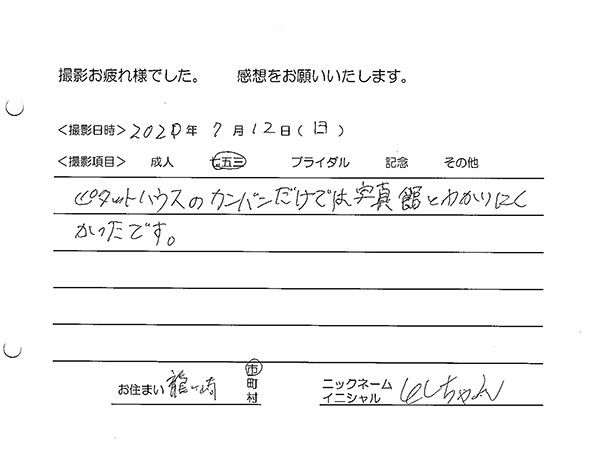 撮影お疲れ様でした。 感想をお願いいたします。
<撮影日時> 2020年 7月12日(日)
<撮影項目> 成人 七五三 ブライダル 記念 その他
ピタットハウスのカンバンだけでは写真館とわかりにく
かったです。
お住まい 龍ヶ崎 市 町 村
ニックネーム イニシャル ちゃん